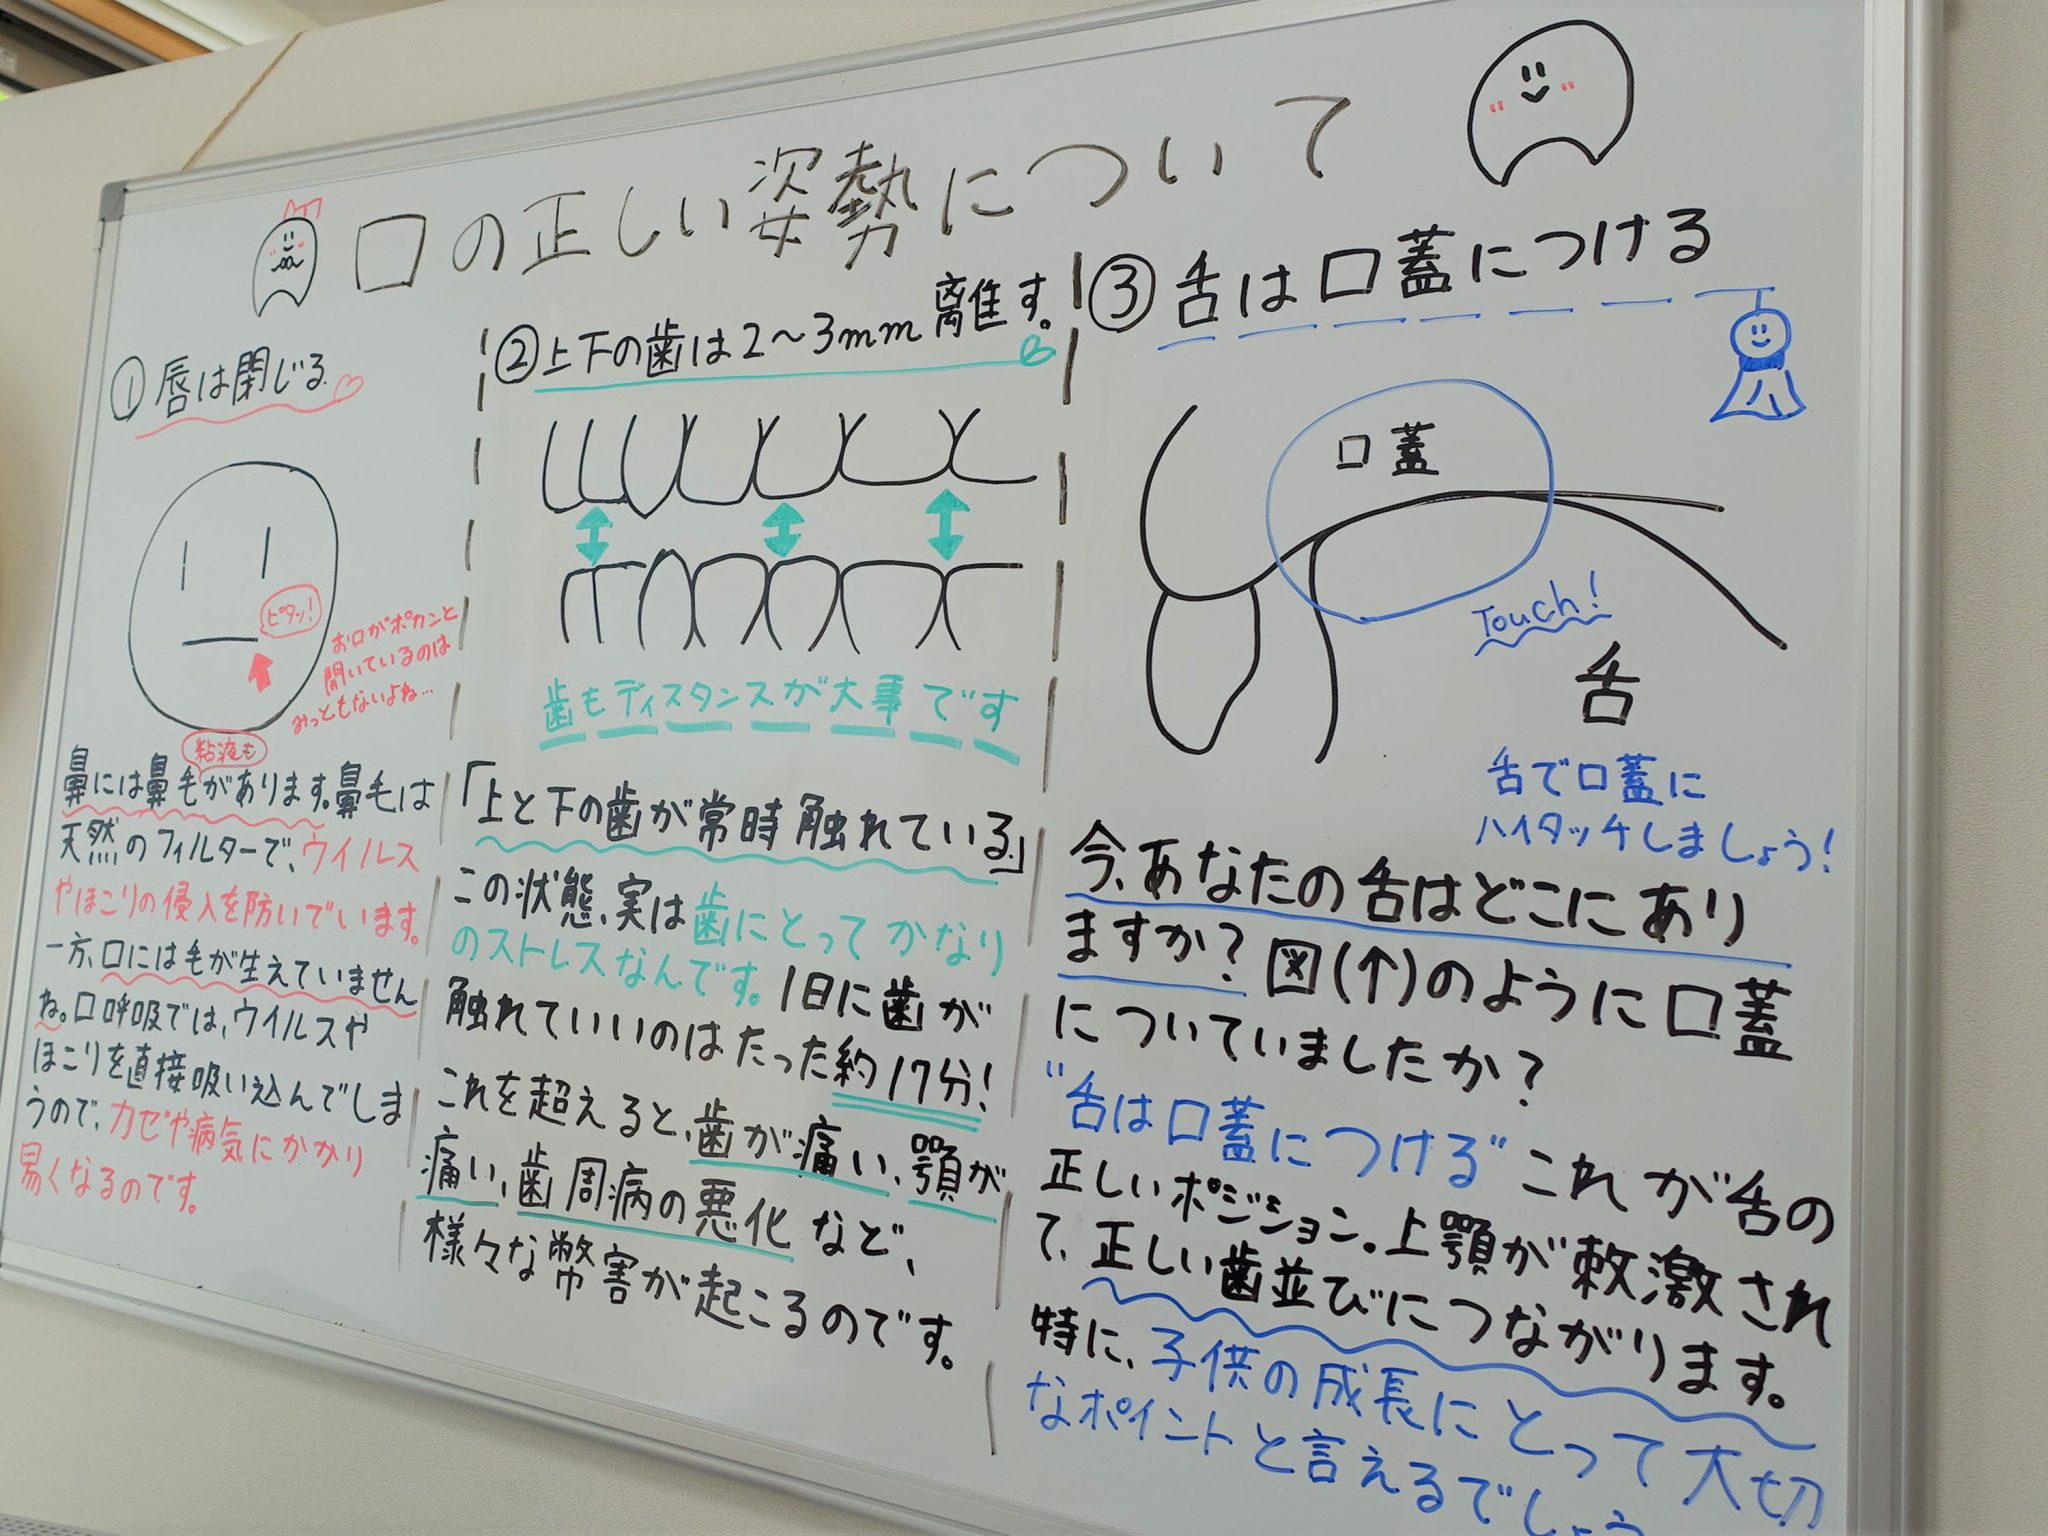 口の正しい姿勢について
①唇は閉じる
ピタッ!
お口がポカンと
開いているのは
みっともないよね…
粘液も
鼻には鼻毛があります。鼻毛は
天然のフィルターで、ウイルス
やほこりの侵入を防いでいます。
一方、口には毛が生えていません
ね。口呼吸では、ウイルスや
ほこりを直接吸い込んでしま
うので、カゼや病気にかかり
易くなるのです。
②上下の歯は2～3mm離す。
歯もディスタンスが大事です
「上と下の歯が常時触れている。」
この状態、実は歯にとってかなり
のストレスなんです。1日に歯が
触れていいのはたった約17分!
これを超えると、歯が痛い、顎が
痛い、歯周病の悪化など、
様々な弊害が起こるのです。
③舌は口蓋につける
口蓋
Touch!
舌
舌で口蓋に
ハイタッチしましょう!
今、あなたの舌はどこにあり
ますか?図(↑)のように口蓋
についていましたか?
"舌は口蓋につける"これが舌の
正しいポジション。上顎が刺激され
て、正しい歯並びにつながります。
特に、子供の成長にとって大切
なポイントと言えるでしょう